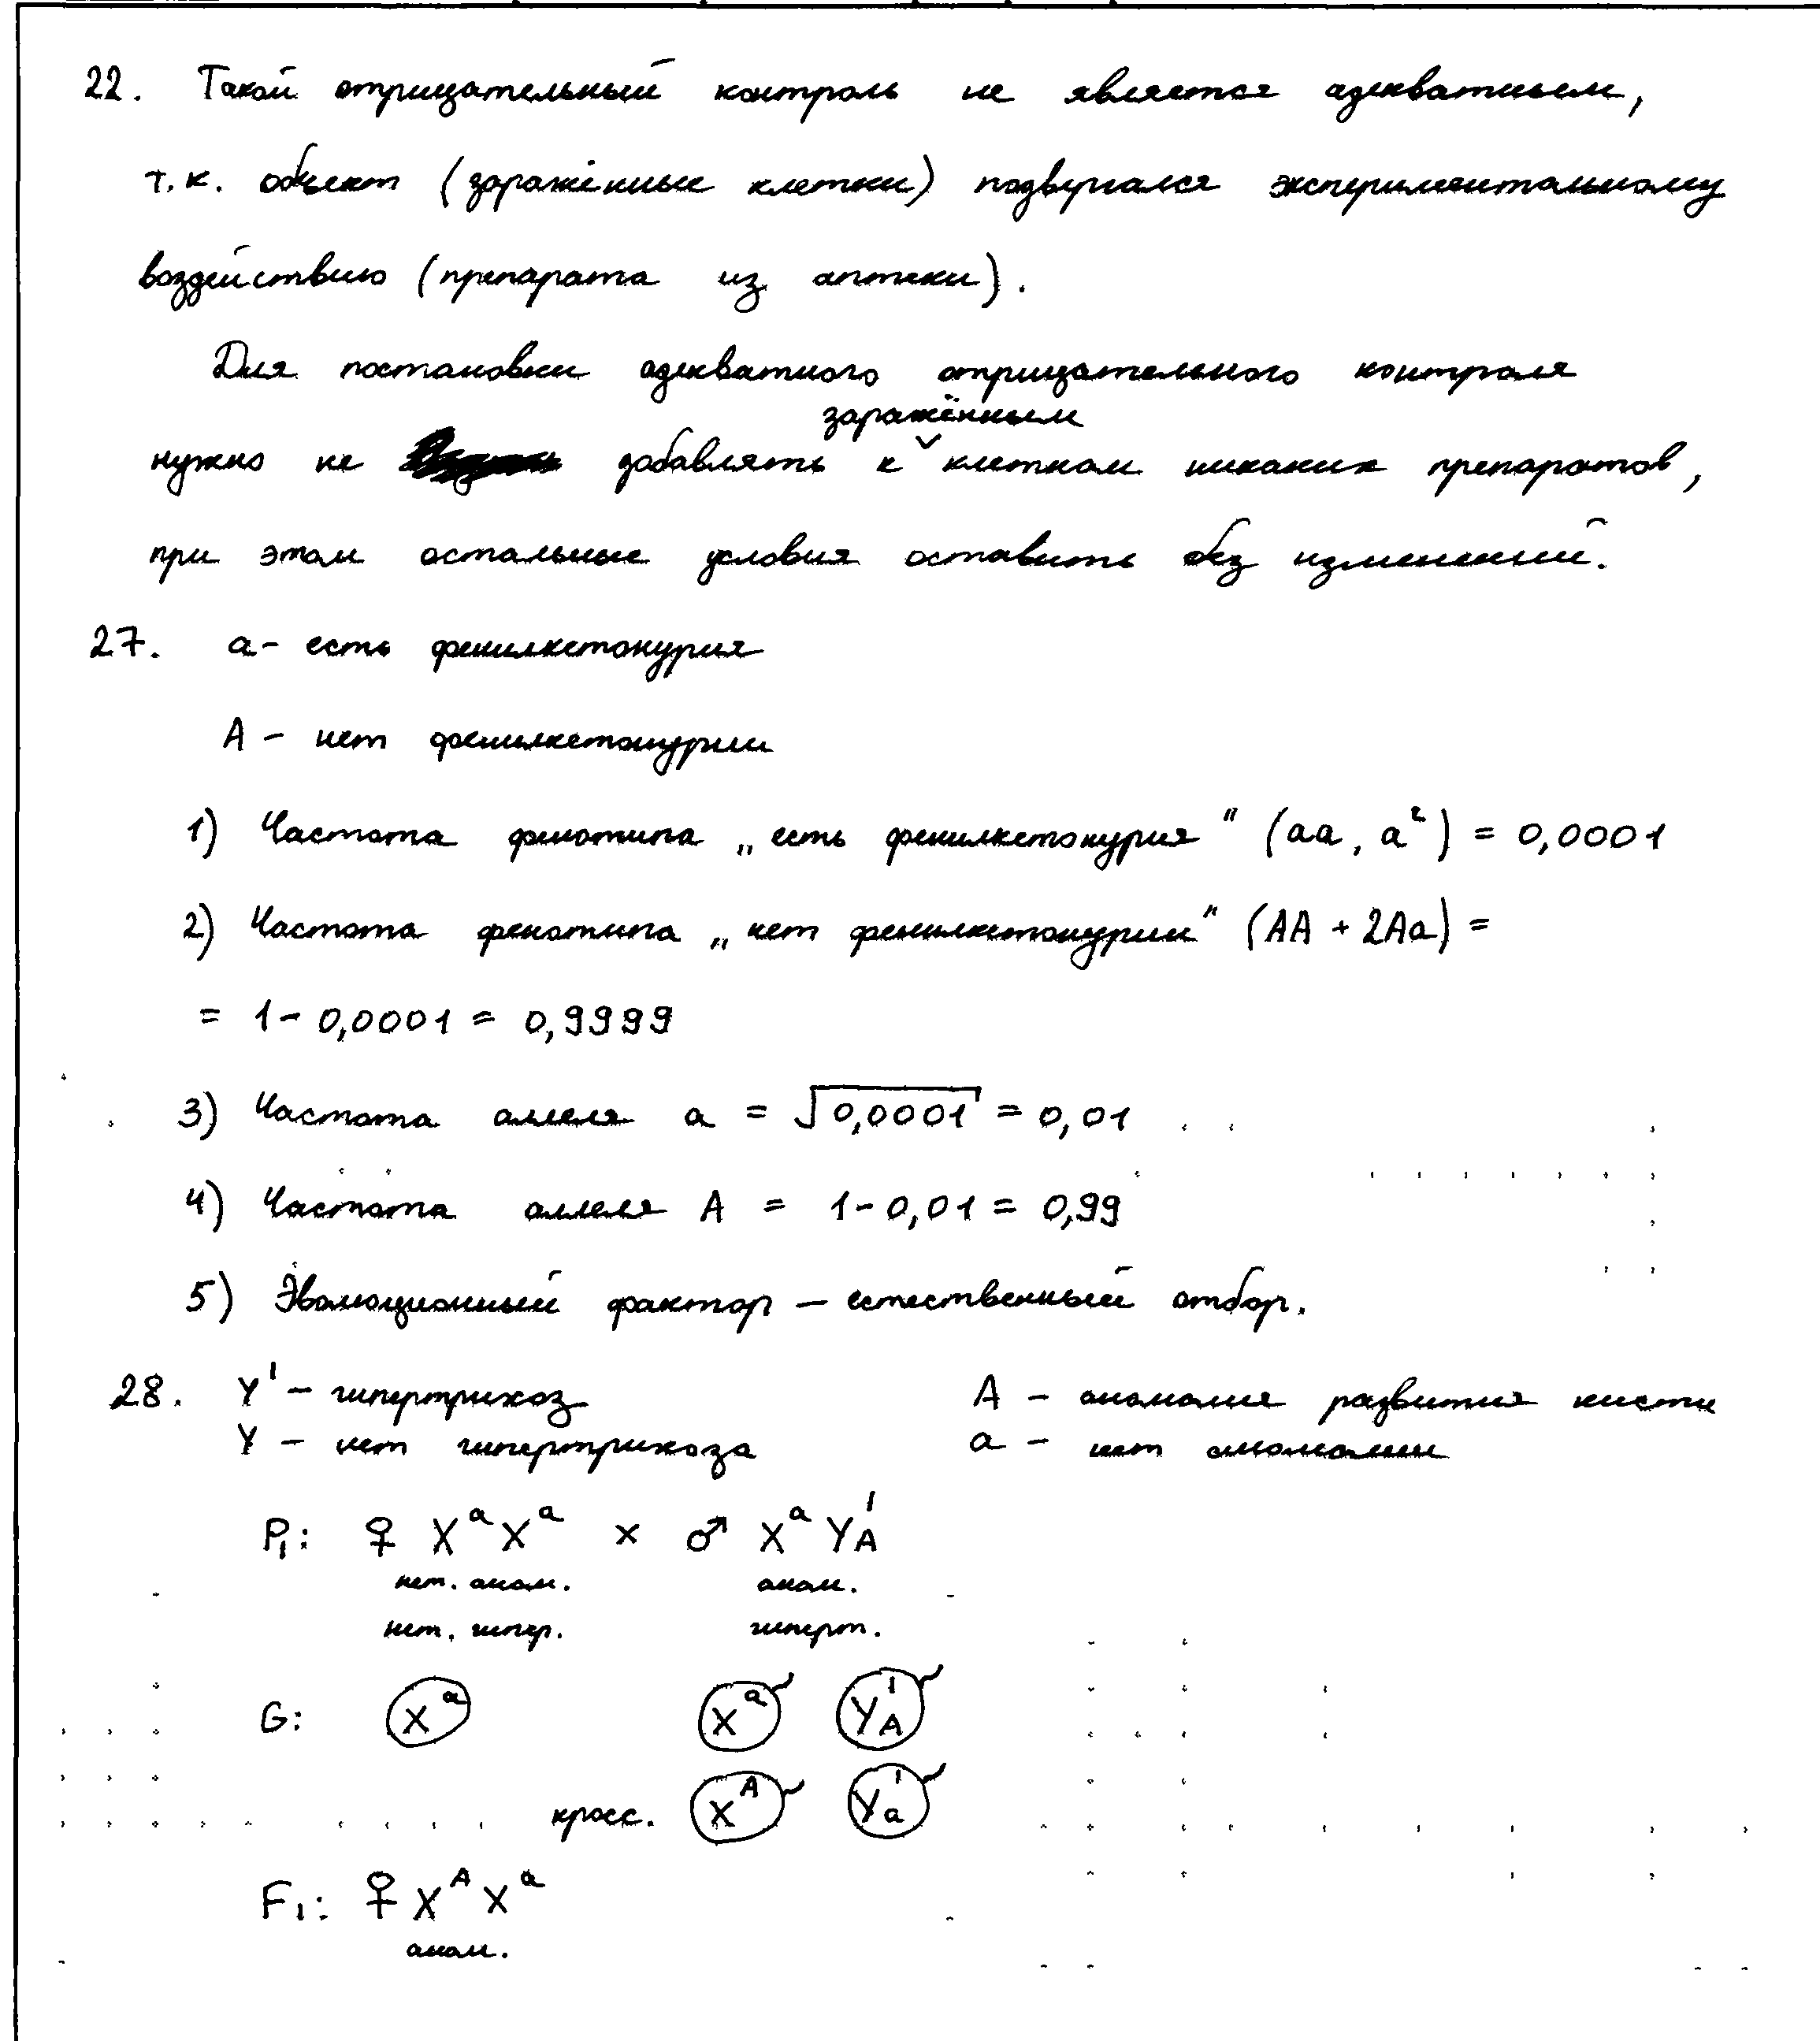 22. Такой отрицательный контроль не является адекватным,
т.к. объект (заражённые клетки) подвергался экспериментальному
воздействию (препарата из аптеки).
Для постановки адекватного отрицательного контроля
заражённым
нужно не добавлять к клеткам никаких препаратов,
при этом остальные условия оставить без изменений.
27. а - есть фенилкетонурия
А - нет фенилкетонурии
1) Частота фенотипа „есть фенилкетонурия" (аа, а²) = 0,0001
2) Частота фенотипа „нет фенилкетонурии" (АА + 2Аа) =
= 1 - 0,0001 = 0,9999
3) Частота аллеля а = √0,0001 = 0,01
4) Частота аллеля А = 1 - 0,01 = 0,99
5) Эволюционный фактор — естественный отбор.
28. Y' - гипертрихоз А - аномалия развития кисти
Y - нет гипертрихоза а - нет аномалии
P₁: ♀ XᵃXᵃ × ♂ XᵃY'A
нет. аном. аном.
нет. гипер. гиперт.
G: Xᵃ Xᵃ Y'A
кросс. Xᴬ Y'a
F₁: ♀ XᴬXᵃ
аном.